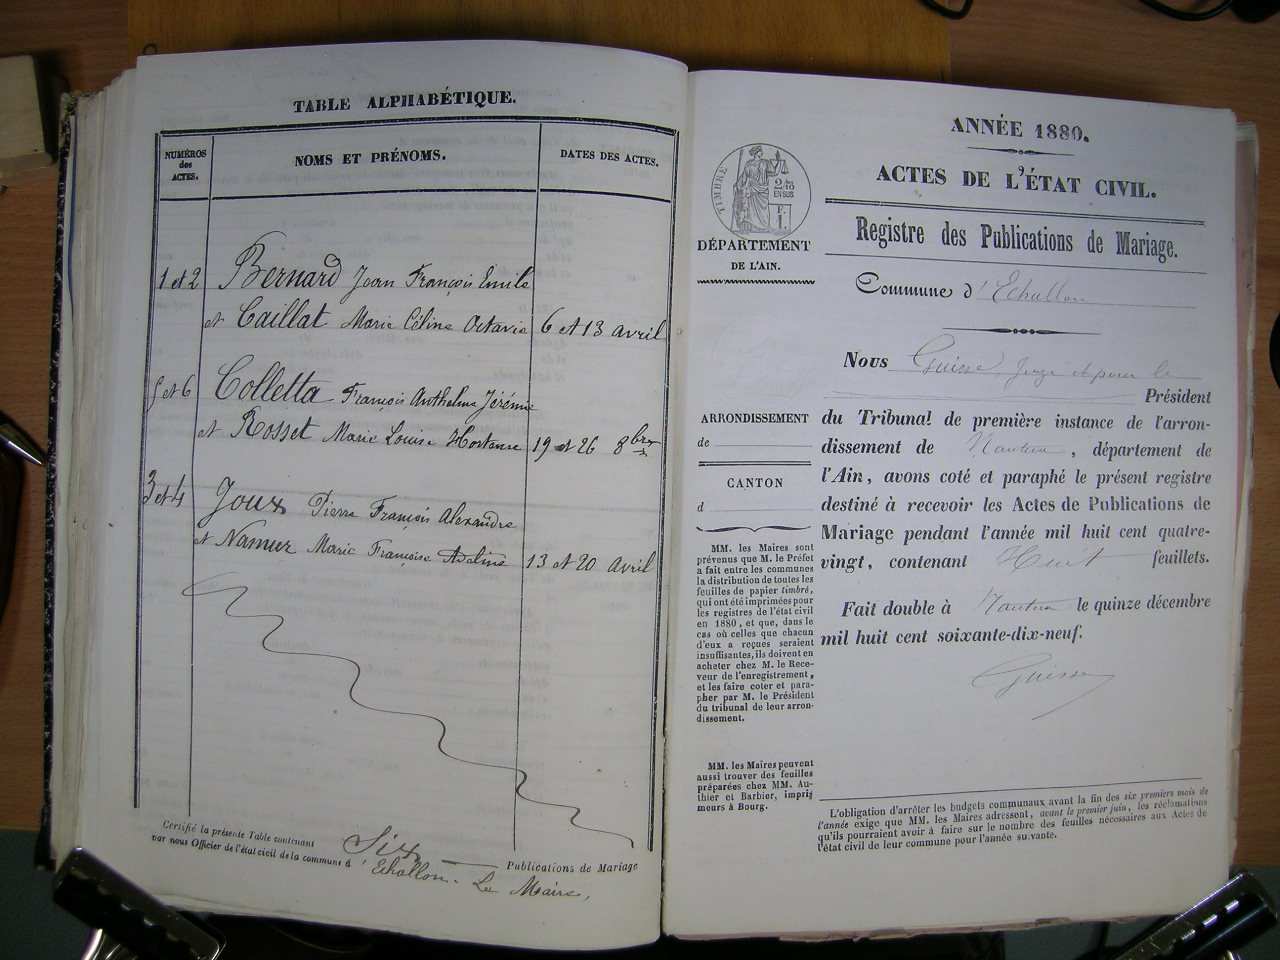 TABLE ALPHABÉTIQUE.
NUMÉROS des ACTES.
NOMS ET PRÉNOMS.
DATES DES ACTES.
1 et 2 Bernard Jean François Emile
et Caillat Marie Céline Octavie 6 et 13 avril
5 et 6 Colletta François Anthelme Jérémie
et Rosset Marie Louise Hortense 19 et 26 8bre
3 et 4 Joux Pierre François Alexandre
et Namur Marie Françoise Adeline 13 et 20 avril
Certifié la présente Table contenant Six Publications de Mariage
par nous Officier de l'état civil de la commune d'Echallon. Le Maire,
ANNÉE 1880.
ACTES DE L'ÉTAT CIVIL.
TIMBRE
2/10
EN SUS
F.
1.
DÉPARTEMENT
DE L'AIN.
Registre des Publications de Mariage.
Commune d'Echallon
ARRONDISSEMENT
de
CANTON
d
Nous Guisse, Juge et pour le
Président
du Tribunal de première instance de l'arron-
dissement de Nantua, département de
l'Ain, avons coté et paraphé le présent registre
destiné à recevoir les Actes de Publications de
Mariage pendant l'année mil huit cent quatre-
vingt, contenant Huit feuillets.
Fait double à Nantua le quinze décembre
mil huit cent soixante-dix-neuf.
Guisse
MM. les Maires sont
prévenus que M. le Préfet
a fait entre les communes
la distribution de toutes les
feuilles de papier timbré,
qui ont été imprimées pour
les registres de l'état civil
en 1880, et que, dans le
cas où celles que chacun
d'eux a reçues seraient
insuffisantes, ils doivent en
acheter chez M. le Rece-
veur de l'enregistrement,
et les faire coter et para-
pher par M. le Président
du tribunal de leur arron-
dissement.
MM. les Maires peuvent
aussi trouver des feuilles
préparées chez MM. Au-
thier et Barbier, impri-
meurs à Bourg.
L'obligation d'arrêter les budgets communaux avant la fin des six premiers mois de
l'année exige que MM. les Maires adressent, avant le premier juin, les réclamations
qu'ils pourraient avoir à faire sur le nombre des feuilles nécessaires aux Actes de
l'état civil de leur commune pour l'année suivante.